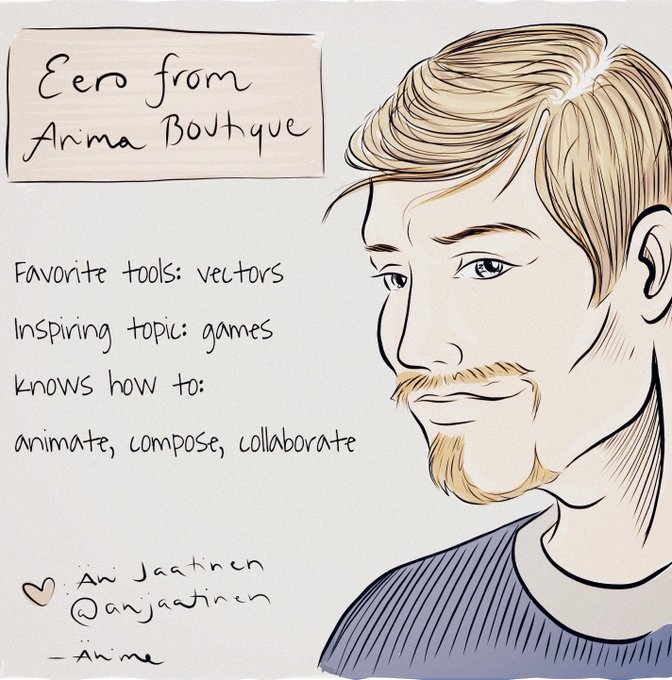 Eero from
Anima Boutique
Favorite tools: vectors
Inspiring topic: games
knows how to:
animate, compose, collaborate
Ani Jaatinen
@anjaatinen